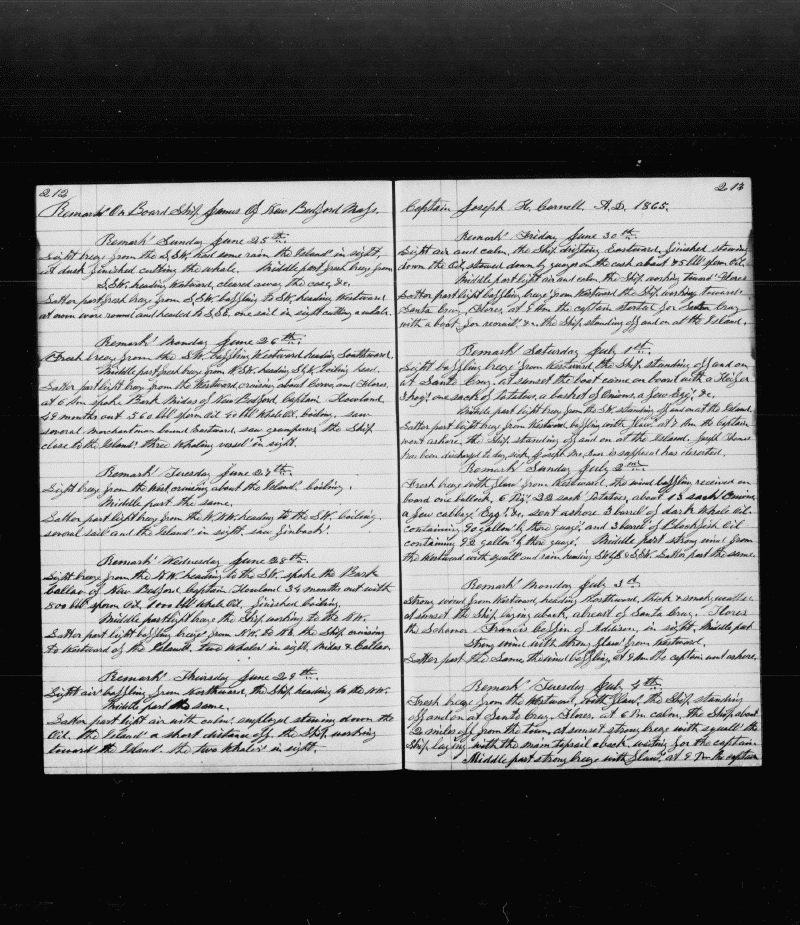 212
Remarks On Board Ship James Of New Bedford Mass.
Remarks Sunday June 25th.
Light breeze from the S.SW. had some rain the Island in sight,
at dusk finished cutting the whale. Middle part fresh breeze from
S.SW. heading Westward, cleared away the case, &c.
Latter part fresh breeze from S.SW. baffling to SW. heading Westward
at noon wore round and headed to S.SE. one sail in sight cutting a whale.
Remarks Monday June 26th.
Fresh breeze from the SW. baffling Westward heading Southward.
Middle part fresh breeze from W.SW. heading boiling head.
Latter part light breeze from the Westward cruising about Corvo, and Flores.
at 6 Am spoke Bark Midas of New Bedford Captain Howland
49 months out 560 bbls sperm Oil 40 bbls Whale Oil, boiling, saw
several merchantman bound Eastward, saw grampuses, the Ship
close to the Island. three Whaling vessels in sight.
Remarks Tuesday June 27th.
Light breeze from the West cruising about the Island. boiling.
Middle part the same.
Latter part light breeze from the W.NW. heading to the SW. boiling.
several sail and the Island in sight. saw finbacks.
Remarks Wednesday June 28th.
Light breeze from the NW. heading to the SW. spoke the Bark
Callao of New Bedford Captain Howland 34 months out with
800 bbls sperm Oil 1000 bbls Whale Oil, finished boiling.
Middle part light breeze the Ship working to the NW.
Latter part light baffling breeze from NW. to NE. the Ship cruising
to Westward of the Islands. two Whalers in sight Midas & Callao.
Remarks Thursday June 29th.
Light airs baffling from Northward, the Ship heading to the NW.
Middle part the same.
Latter part light air with calms. employed stowing down the
Oil. the Island a short distance off. the Ship working
toward the Island. the two Whalers in sight.
213
Captain Joseph H. Cornell A.D. 1865.
Remarks Friday June 30th.
Light air and calm, the Ship drifting Eastward, finished stowing
down the Oil, stowed down by guage on the cask about 75 bbls sperm Oil.
Middle part light air and calm the Ship working toward Flores
Latter part light baffling breeze from Westward the Ship working toward
Santa Cruz, Flores, at 9 Am the captain started for Santa Cruz
with a boat, for recruits, &c. the Ship standing off and on at the Island.
Remarks Saturday July 1st.
Light baffling breeze from Westward the Ship standing off and on
at Santa Cruz, at sunset the boat came on board with a Heifer
hogs one sack of Potatoes, a basket of Onions, a few Eggs, &c.
Middle part light breeze from the SW. standing off and on at the Island.
Latter part light breeze from Westward, baffling with at 7 Am the Captain
went ashore. the Ship standing off and on at the Island. Joseph
has been discharged to day sick, Joseph is supposed has deserted.
Remarks Sunday July 2nd.
Fresh breeze with flaws from Westward, the wind baffling received on
board one bullock, 6 Pigs, 22 sacks Potatoes, about 13 sacks Onions
a few cabbage Eggs, &c, sent ashore 3 barrels of dark Whale Oil
containing 90 gallons by their guage, and 3 barrels of Blackfish Oil
containing 92 gallons by their guage. Middle part strong wind from
the Westward with squalls and rain heading & S.SW. Latter part the same.
Remarks Monday July 3d.
Strong wind from Westward, heading Northward, thick & smoky weather
at sunset the Ship laying aback, abreast of Santa Cruz. Flores
the Schooner Francis Coffin of Addison, in sight, Middle part
strong wind with strong flaws from Westward.
Latter part the same, the wind baffling at 9 Am the captain went ashore.
Remarks Tuesday July 4th.
Fresh breeze from the Westward, with flaws, the Ship standing
off and on at Santa Cruz, Flores, at 6 Pm calm, the Ship about
2½ miles off from the town, at sunset strong breeze with squalls the
Ship laying with the main topsail aback, waiting for the captain
Middle part strong breeze with flaws, at 9 Pm the captain